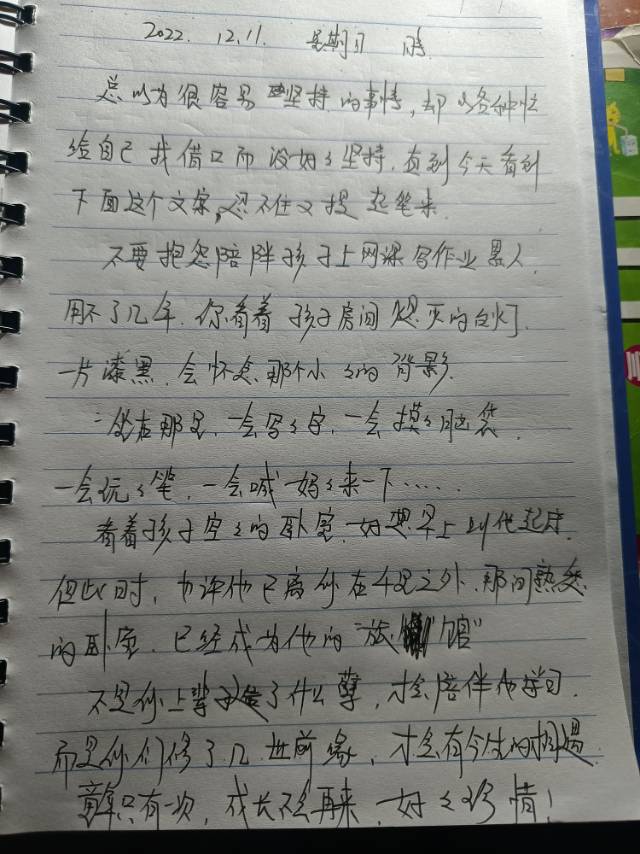 2022. 12.11. 星期日 晴
总以为很容易坚持的事情,却以各种忙
给自己找借口而没好々坚持.直到今天看到
下面这个文案,忍不住又提起笔来.
不要抱怨陪伴孩子上网课写作业累人.
用不了几年.你看着孩子房间熄灭的台灯.
一片漆黑.会怀念那个小々的背影.
坐在那里,一会写々字,一会摸々脑袋.
一会玩々笔,一会喊妈々来一下……
看着孩子空々的卧室.好想早上叫他起床.
但此时,也许他已离你在千里之外.那间熟悉
的卧室.已经成为他的“旅馆”
不是你上辈子造了什么孽,才会陪伴他学习.
而是你们修了几世前缘,才会有今生的相遇.
童年只有一次,成长不会再来.好々珍惜!